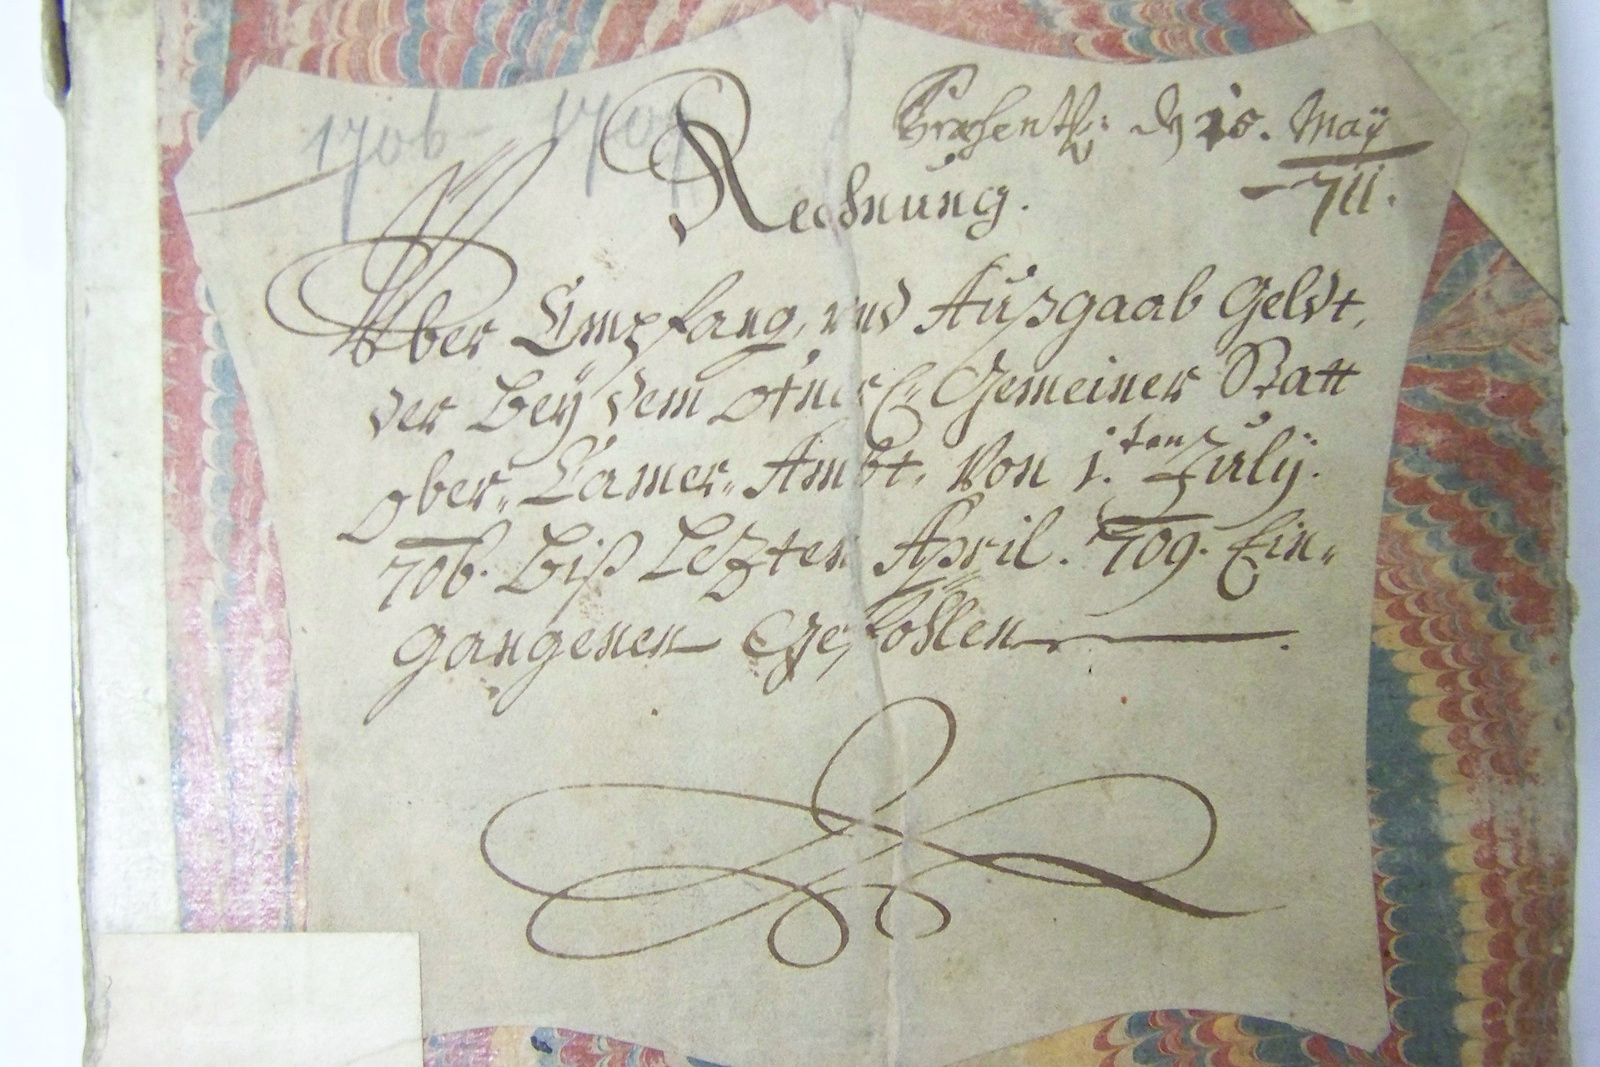 1706 - 1709
Præsent: dẽ 15. May
711.
Rechnung.
Über Empfang, und Außgaab Geldt,
der bey dem Gemeiner Statt
Ober„ Camer„ Ambt, Von 1.ten July.
706. biß Letzten April. 709. Ein„
gangenen Gefohlen